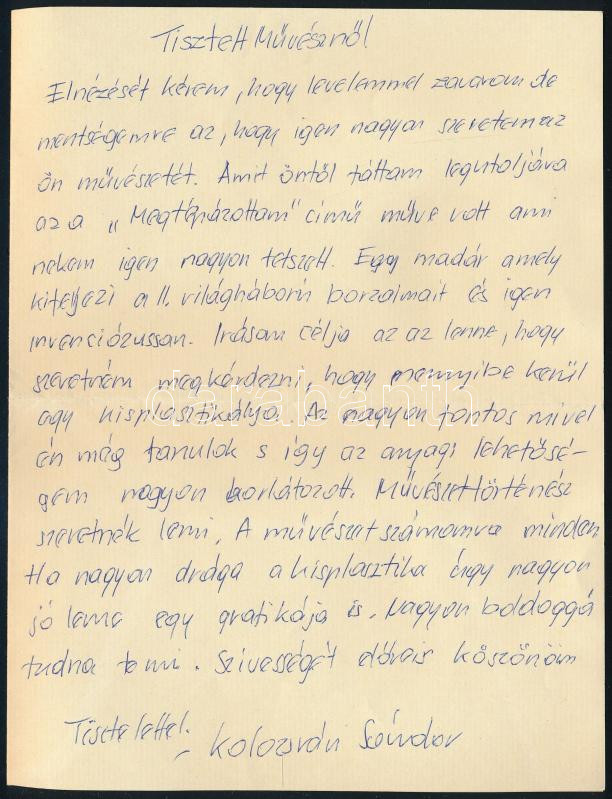 Tisztelt Művésznő!
Elnézését kérem, hogy levelemmel zavarom de
mentségemre az, hogy igen nagyon szeretem az
Ön művészetét. Amit Öntől láttam legutoljára
az a „Megtépázottan" című műve volt ami
nekem igen nagyon tetszett. Egy madár amely
kifejezi a II. világháború borzalmait és igen
invenciózussan. Irásom célja az az lenne, hogy
szeretném megkérdezni, hogy mennyibe kerül
egy kisplasztikája. Az nagyon fontos mivel
én még tanulok s így az anyagi lehetősé-
gem nagyon korlátozott. Művészettörténész
szeretnék lenni. A művészet számomra minden
Ha nagyon drága a kisplasztika úgy nagyon
jó lenne egy grafikája is. Nagyon boldoggá
tudna tenni. Szivességét előre is köszönöm
Tisztelettel:
Kolozsvári Sándor
darabanth